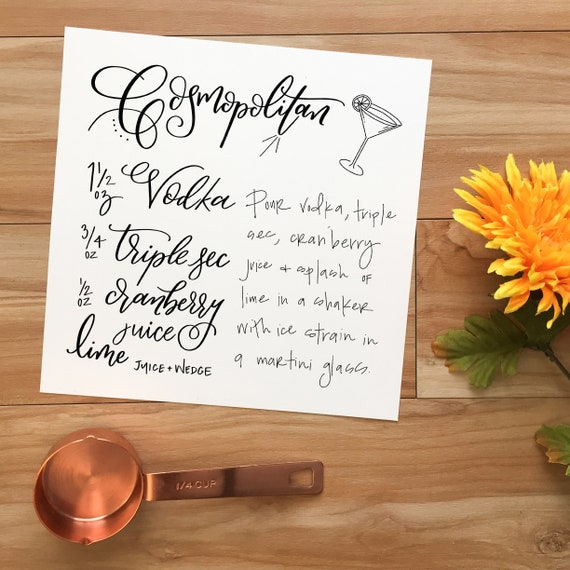 Cosmopolitan
1 1/2 oz Vodka
3/4 oz triple sec
1/2 oz cranberry
juice
lime JUICE + WEDGE
Pour vodka, triple
sec, cranberry
juice + splash of
lime in a shaker
with ice strain in
a martini glass.
1/4 CUP